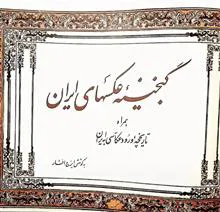 گنجینهٔ عکسهای ایران
همراه
تاریخچهٔ ورود عکاسی به ایران
بکوشش ایرج افشار